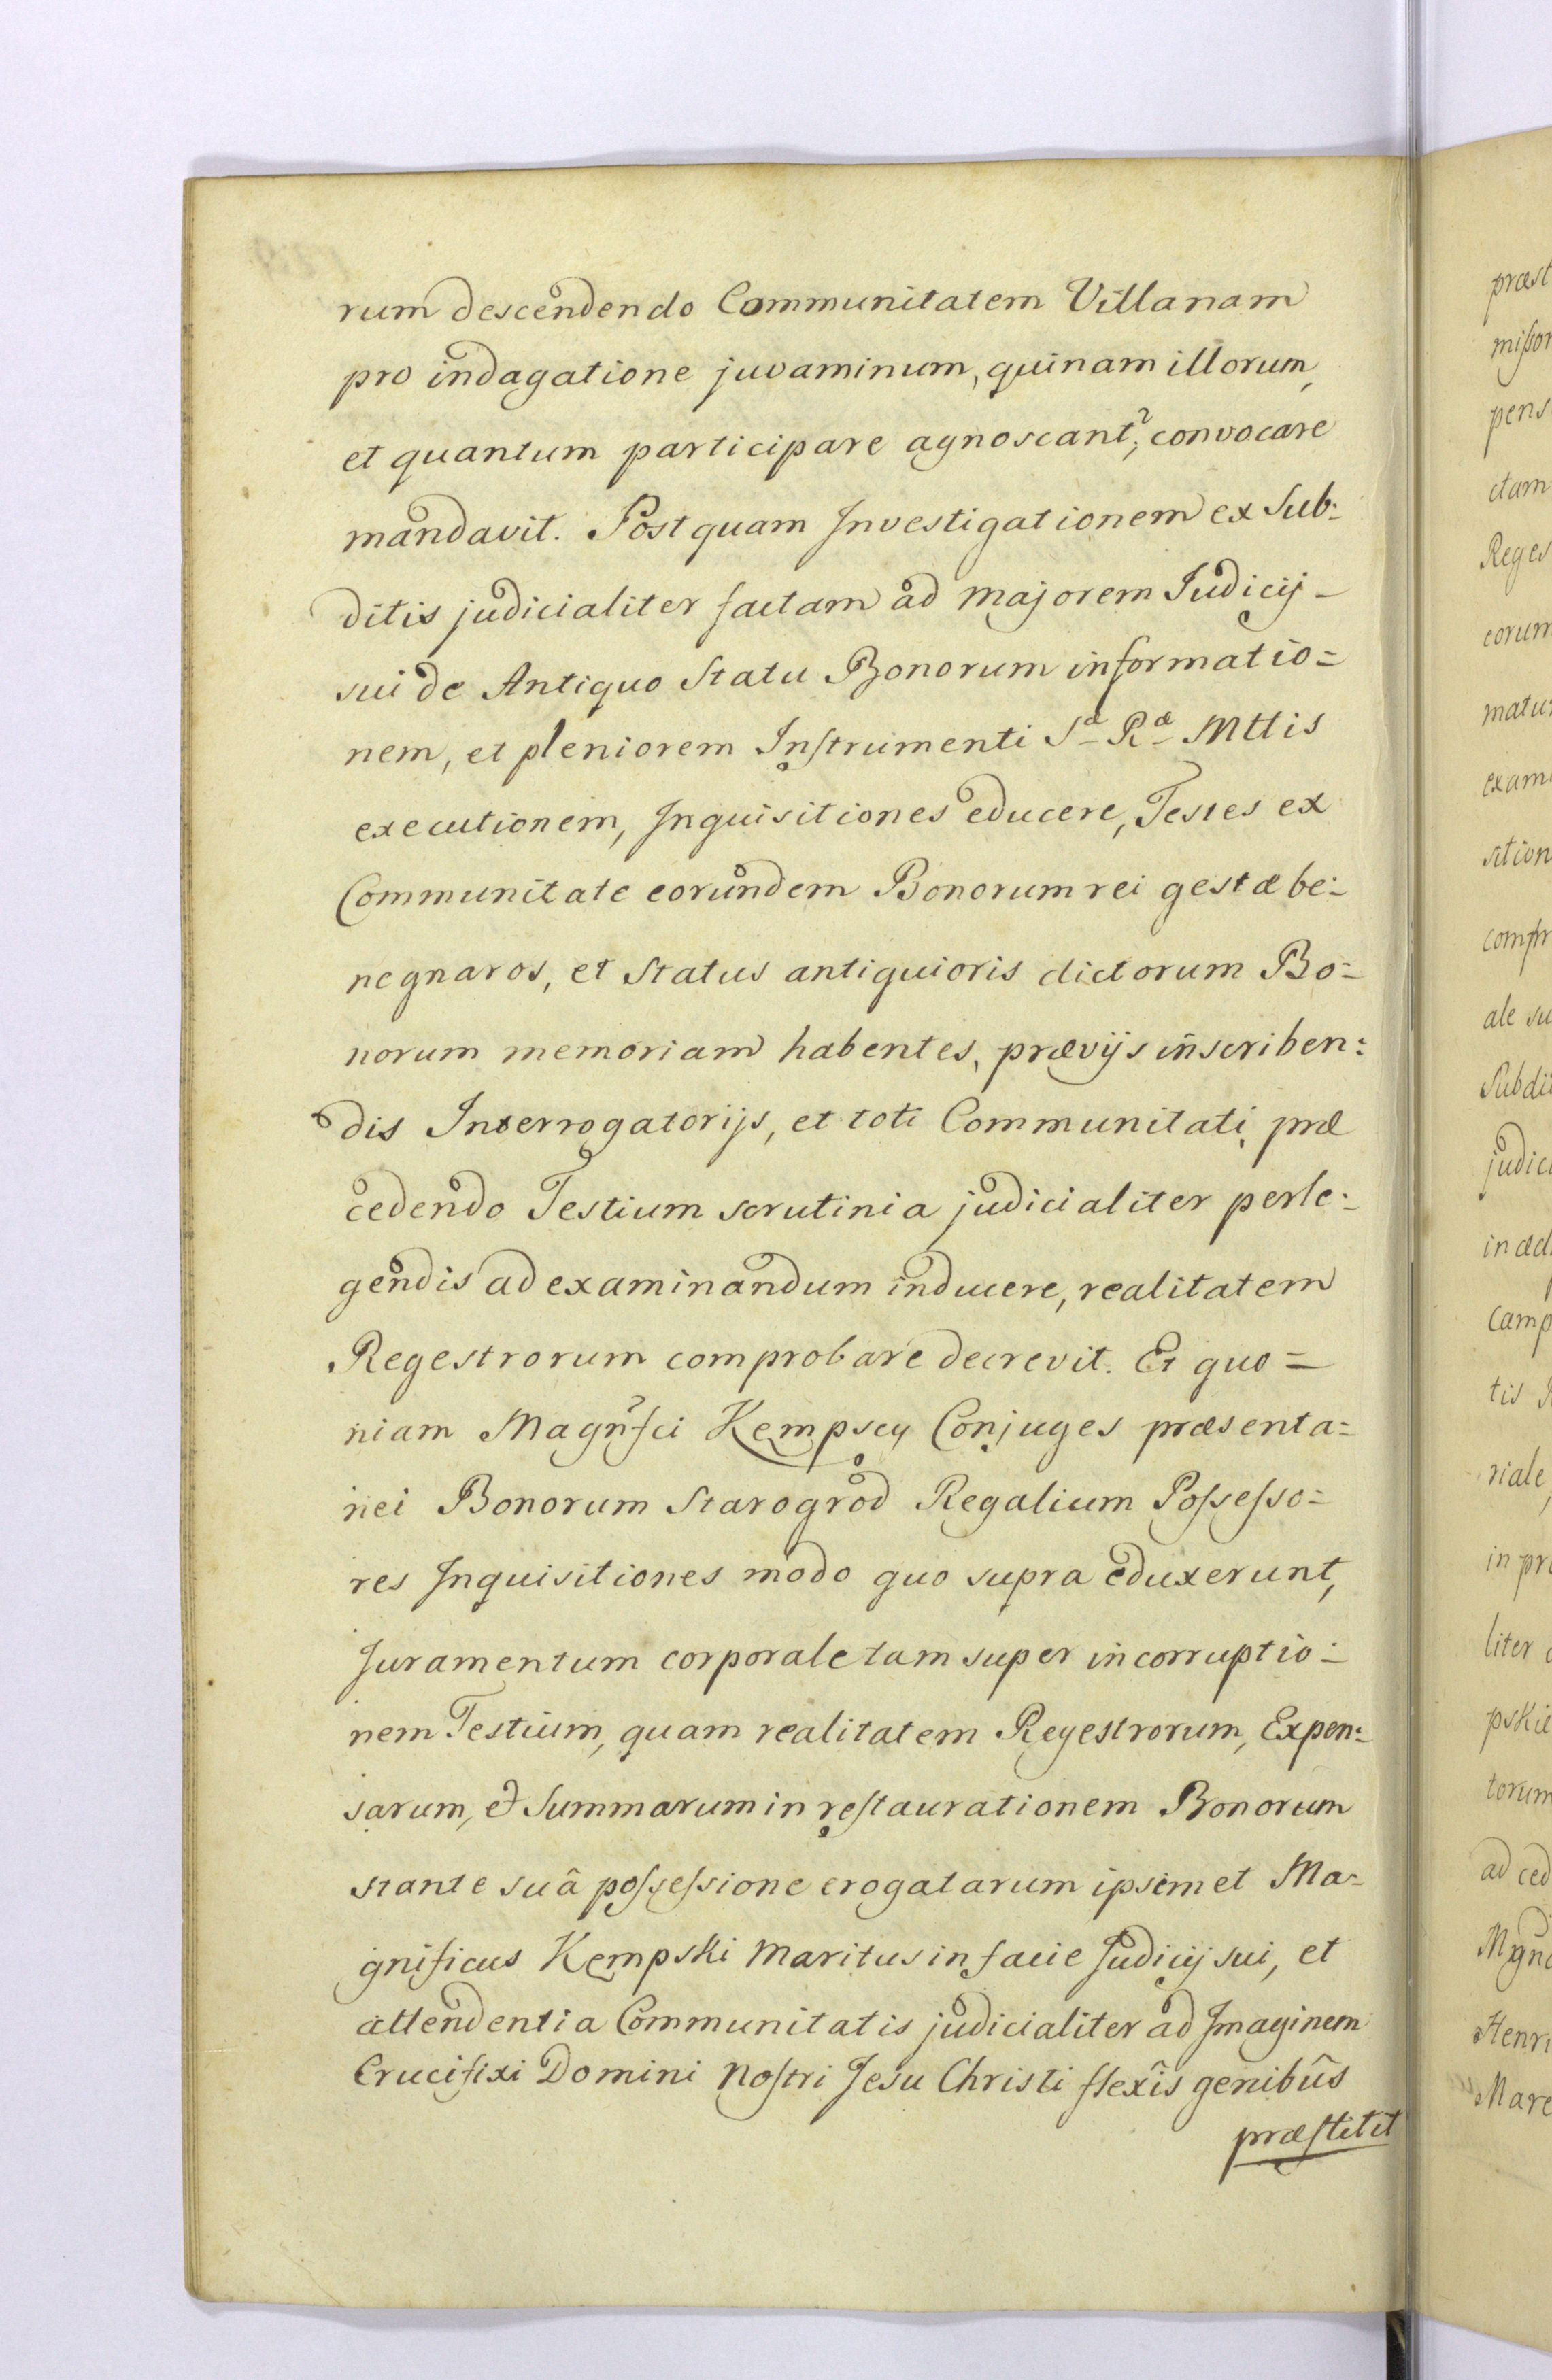 rum descendendo Communitatem Villanam
pro indagatione juvaminum, quinam illorum,
et quantum participare agnoscant; convocare
mandavit. Postquam Investigationem ex Sub=
ditis judicialiter factam ad majorem Judicij
sui de Antiquo Statu Bonorum informatio=
nem, et pleniorem Instrumenti Sæ Ræ Mttis
executionem, Inquisitiones educere, Testes ex
Communitate eorundem Bonorum rei gestæ be=
ne gnaros, et Status antiquioris dictorum Bo=
norum memoriam habentes, prævijs inscriben=
dis Interrogatorijs, et toti Communitati præ
cedendo Testium scrutinia judicialiter perle=
gendis ad examinandum inducere, realitatem
Regestrorum comprobare decrevit. Et quo=
niam Magnfci Kempscy Conjuges præsenta=
nei Bonorum Starogrod Regalium Possesso=
res Inquisitiones modo quo supra eduxerunt,
Juramentum corporale tam super incorruptio=
nem Testium, quam realitatem Regestrorum, Expen=
sarum, et Summarum in restaurationem Bonorum
stante suâ possessione erogatarum ipsemet Ma=
gnificus Kempski Maritus in facie Judicij sui, et
attendentia Communitatis judicialiter ad Imaginem
Crucifixi Domini Nostri Jesu Christi flexîs genibûs
præstitit
præst
missor
pens
ctam
Reges
eorum
matu
exam
sition
comp
ale su
Subdi
judic
in æd
Camp
tis
riale,
in pr
liter
pskie
torum
ad ced
Mgn
Henri
Mare